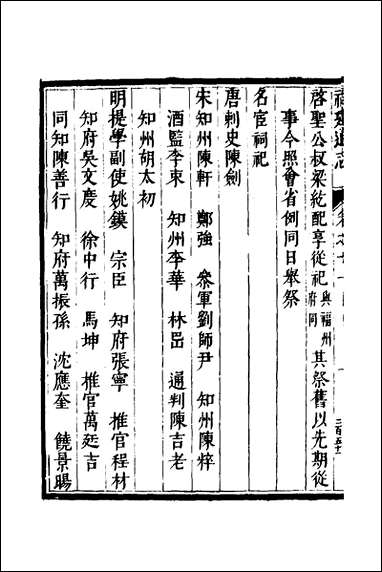 福建通志
卷之
啓聖公叔梁紇配享從祀與福州府同其祭舊以先期從
事今照會省例同日舉祭
名宦祠祀
唐刺史陳劍
宋知州陳軒　鄭強　叅軍劉師尹　知州陳粹
酒監李東　知州李華　林嵒　通判陳吉老
知州胡太初
明提學副使姚鏌　宗臣　知府張寧　推官程材
知府吳文慶　徐中行　馬坤　推官萬廷吉
同知陳善行　知府萬振孫　沈應奎　饒景暘